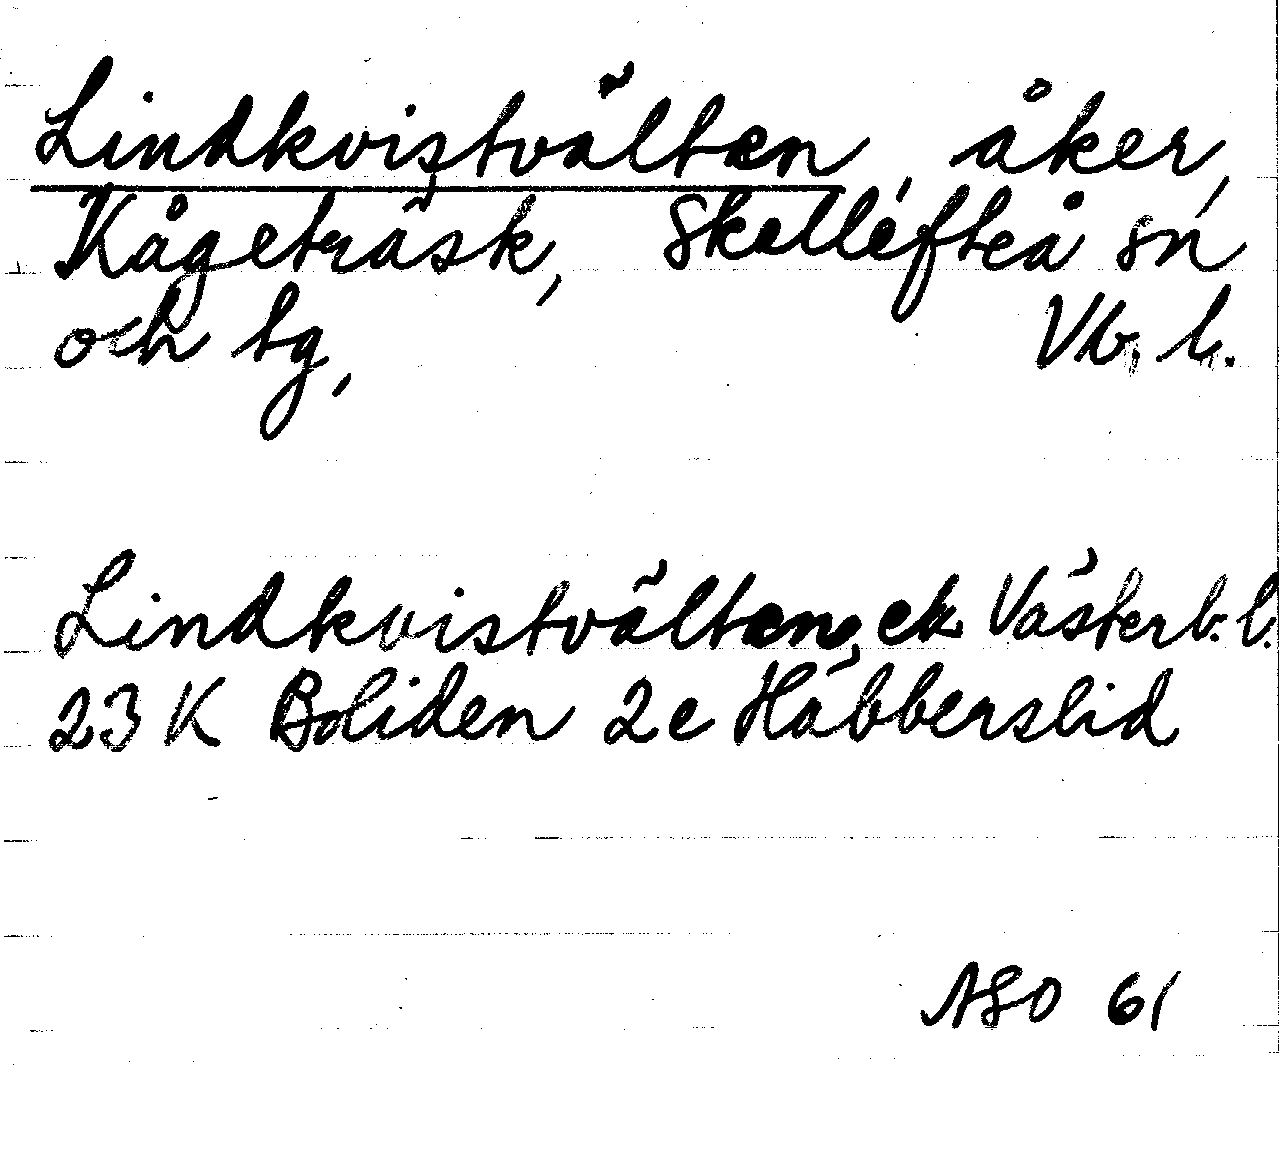 Lindkvistvälten, åker,
Kågeträsk, Skellefteå sn
och tg, Vb. l.
Lindkvistvälten, ek. Västerb. l.
23 K Boliden 2e Häbberslid
ASO 61